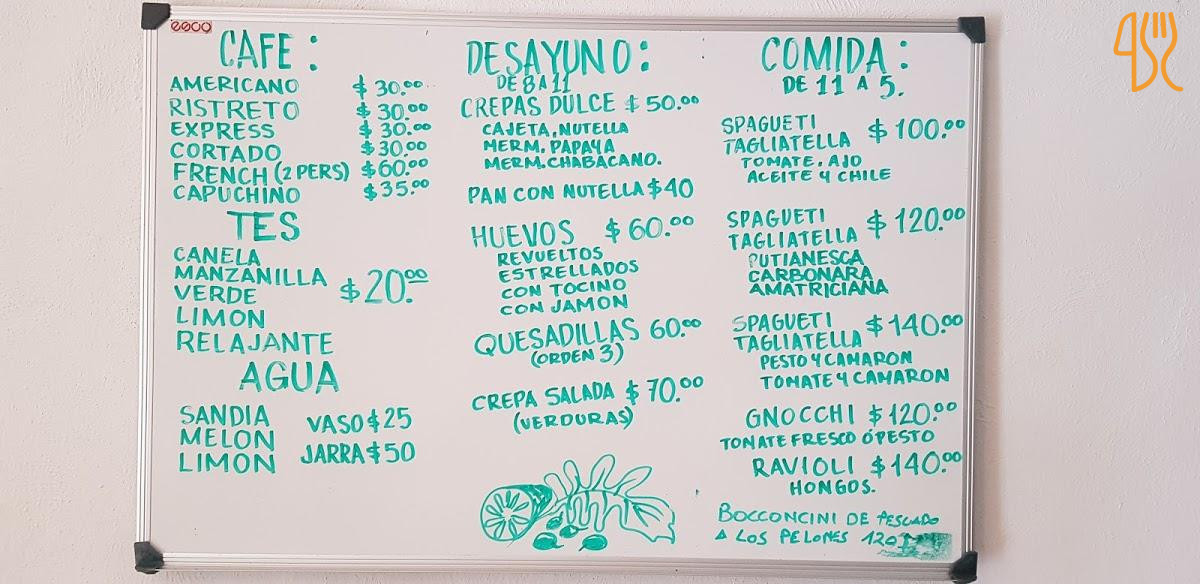 esco
CAFE:
AMERICANO $30.00
RISTRETO $30.00
EXPRESS $30.00
CORTADO $30.00
FRENCH (2 PERS) $60.00
CAPUCHINO $35.00
TES
CANELA
MANZANILLA $20.00
VERDE
LIMON
RELAJANTE
AGUA
SANDIA VASO $25
MELON JARRA $50
LIMON
DESAYUNO:
DE 8 A 11
CREPAS DULCE $50.00
CAJETA, NUTELLA
MERM. PAPAYA
MERM. CHABACANO.
PAN CON NUTELLA $40
HUEVOS $60.00
REVUELTOS
ESTRELLADOS
CON TOCINO
CON JAMON
QUESADILLAS 60.00
(ORDEN 3)
CREPA SALADA $70.00
(VERDURAS)
COMIDA:
DE 11 A 5.
SPAGUETI
TAGLIATELLA $100.00
TOMATE, AJO
ACEITE Y CHILE
SPAGUETI
TAGLIATELLA $120.00
PUTIANESCA
CARBONARA
AMATRICIANA
SPAGUETI
TAGLIATELLA $140.00
PESTO Y CAMARON
TOMATE Y CAMARON
GNOCCHI $120.00
TOMATE FRESCO Ó PESTO
RAVIOLI $140.00
HONGOS.
BOCCONCINI DE PESCADO
A LOS PELONES 120